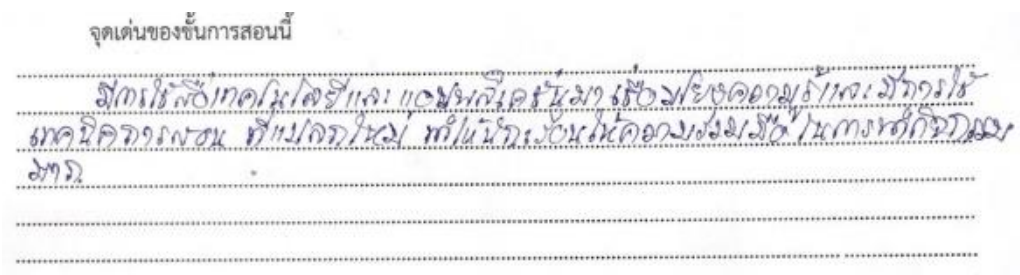 จุดเด่นของขั้นการสอนนี้
มีการใช้สื่อเทคโนโลยีและ แอปพลิเคชันมาเชื่อมโยงความรู้และมีการใช้
เทคนิคการสอน ที่แปลกใหม่ ทำให้นักเรียนให้ความร่วมมือในการทำกิจกรรม
มาก